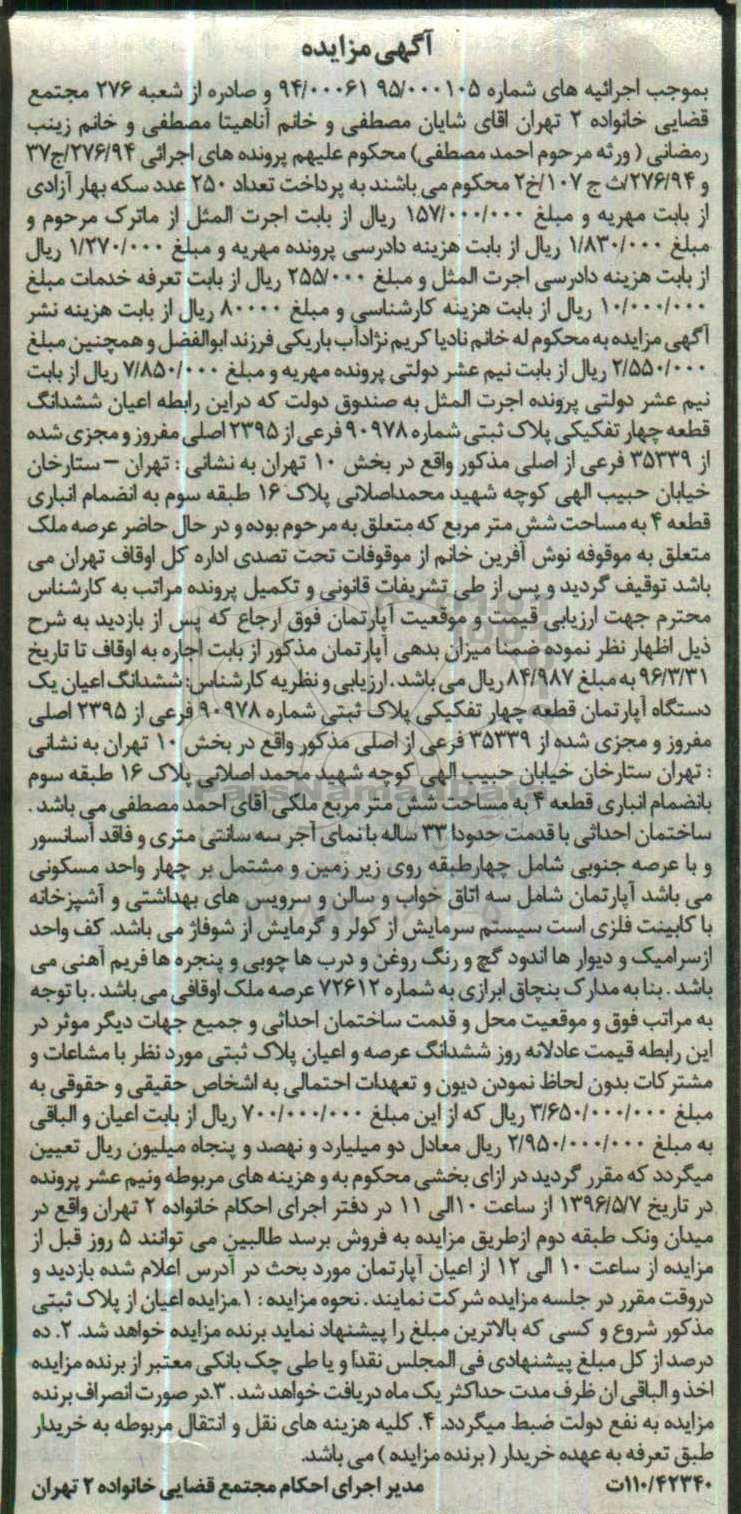 آگهی مزایده
بموجب اجرائیه های شماره ۹۵/۰۰۰۱۰۵ ۹۴/۰۰۰۶۱ و صادره از شعبه ۲۷۶ مجتمع
قضایی خانواده ۲ تهران اقای شایان مصطفی و خانم آناهیتا مصطفی و خانم زینب
رمضانی ( ورثه مرحوم احمد مصطفی) محکوم علیهم پرونده های اجرائی ۲۷۶/۹۴/ج۳۷
و ۲۷۶/۹۴/ث ج ۱۰۷/خ۲ محکوم می باشند به پرداخت تعداد ۲۵۰ عدد سکه بهار آزادی
از بابت مهریه و مبلغ ۱۵۷/۰۰۰/۰۰۰ ریال از بابت اجرت المثل از ماترک مرحوم و
مبلغ ۱/۸۳۰/۰۰۰ ریال از بابت هزینه دادرسی پرونده مهریه و مبلغ ۱/۲۷۰/۰۰۰ ریال
از بابت هزینه دادرسی اجرت المثل و مبلغ ۲۵۵/۰۰۰ ریال از بابت تعرفه خدمات مبلغ
۱۰/۰۰۰/۰۰۰ ریال از بابت هزینه کارشناسی و مبلغ ۸۰۰۰۰ ریال از بابت هزینه نشر
آگهی مزایده به محکوم له خانم نادیا کریم نژادآب باریکی فرزند ابوالفضل و همچنین مبلغ
۲/۵۵۰/۰۰۰ ریال از بابت نیم عشر دولتی پرونده مهریه و مبلغ ۷/۸۵۰/۰۰۰ ریال از بابت
نیم عشر دولتی پرونده اجرت المثل به صندوق دولت که دراین رابطه اعیان ششدانگ
قطعه چهار تفکیکی پلاک ثبتی شماره ۹۰۹۷۸ فرعی از ۲۳۹۵ اصلی مفروز و مجزی شده
از ۳۵۳۳۹ فرعی از اصلی مذکور واقع در بخش ۱۰ تهران به نشانی : تهران – ستارخان
خیابان حبیب الهی کوچه شهید محمداصلانی پلاک ۱۶ طبقه سوم به انضمام انباری
قطعه ۴ به مساحت شش متر مربع که متعلق به مرحوم بوده و در حال حاضر عرصه ملک
متعلق به موقوفه نوش آفرین خانم از موقوفات تحت تصدی اداره کل اوقاف تهران می
باشد توقیف گردید و پس از طی تشریفات قانونی و تکمیل پرونده مراتب به کارشناس
محترم جهت ارزیابی قیمت و موقعیت آپارتمان فوق ارجاع که پس از بازدید به شرح
ذیل اظهار نظر نموده ضمنا میزان بدهی آپارتمان مذکور از بابت اجاره به اوقاف تا تاریخ
۹۶/۳/۳۱ به مبلغ ۸۴/۹۸۷ ریال می باشد . ارزیابی و نظریه کارشناس: ششدانگ اعیان یک
دستگاه آپارتمان قطعه چهار تفکیکی پلاک ثبتی شماره ۹۰۹۷۸ فرعی از ۲۳۹۵ اصلی
مفروز و مجزی شده از ۳۵۳۳۹ فرعی از اصلی مذکور واقع در بخش ۱۰ تهران به نشانی
: تهران ستارخان خیابان حبیب الهی کوچه شهید محمد اصلانی پلاک ۱۶ طبقه سوم
بانضمام انباری قطعه ۴ به مساحت شش متر مربع ملکی آقای احمد مصطفی می باشد .
ساختمان احداثی با قدمت حدودا ۳۳ ساله با نمای آجر سه سانتی متری و فاقد آسانسور
و با عرصه جنوبی شامل چهارطبقه روی زیر زمین و مشتمل بر چهار واحد مسکونی
می باشد آپارتمان شامل سه اتاق خواب و سالن و سرویس های بهداشتی و آشپزخانه
با کابینت فلزی است سیستم سرمایش از کولر و گرمایش از شوفاژ می باشد. کف واحد
ازسرامیک و دیوار ها اندود گچ و رنگ روغن و درب ها چوبی و پنجره ها فریم آهنی می
باشد . بنا به مدارک بنچاق ابرازی به شماره ۷۲۶۱۲ عرصه ملک اوقافی می باشد . با توجه
به مراتب فوق و موقعیت محل و قدمت ساختمان احداثی و جمیع جهات دیگر موثر در
این رابطه قیمت عادلانه روز ششدانگ عرصه و اعیان پلاک ثبتی مورد نظر با مشاعات و
مشترکات بدون لحاظ نمودن دیون و تعهدات احتمالی به اشخاص حقیقی و حقوقی به
مبلغ ۳/۶۵۰/۰۰۰/۰۰۰ ریال که از این مبلغ ۷۰۰/۰۰۰/۰۰۰ ریال از بابت اعیان و الباقی
به مبلغ ۲/۹۵۰/۰۰۰/۰۰۰ ریال معادل دو میلیارد و نهصد و پنجاه میلیون ریال تعیین
میگردد که مقرر گردید در ازای بخشی محکوم به و هزینه های مربوطه ونیم عشر پرونده
در تاریخ ۱۳۹۶/۵/۷ از ساعت ۱۰الی ۱۱ در دفتر اجرای احکام خانواده ۲ تهران واقع در
میدان ونک طبقه دوم ازطریق مزایده به فروش برسد طالبین می توانند ۵ روز قبل از
مزایده از ساعت ۱۰ الی ۱۲ از اعیان آپارتمان مورد بحث در آدرس اعلام شده بازدید و
دروقت مقرر در جلسه مزایده شرکت نمایند . نحوه مزایده : ۱.مزایده اعیان از پلاک ثبتی
مذکور شروع و کسی که بالاترین مبلغ را پیشنهاد نماید برنده مزایده خواهد شد. ۲. ده
درصد از کل مبلغ پیشنهادی فی المجلس نقداً و یا طی چک بانکی معتبر از برنده مزایده
اخذ و الباقی ان ظرف مدت حداکثر یک ماه دریافت خواهد شد . ۳.در صورت انصراف برنده
مزایده به نفع دولت ضبط میگردد. ۴. کلیه هزینه های نقل و انتقال مربوطه به خریدار
طبق تعرفه به عهده خریدار ( برنده مزایده ) می باشد.
۱۱۰/۴۲۳۴۰ت مدیر اجرای احکام مجتمع قضایی خانواده ۲ تهران